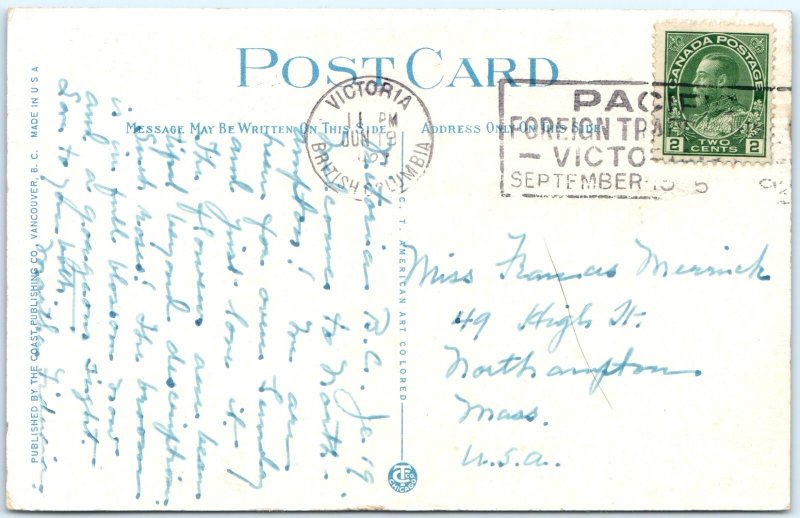 POST CARD
MESSAGE MAY BE WRITTEN ON THIS SIDE
ADDRESS ONLY ON THIS SIDE
VICTORIA
11 PM
JUN 19
BRITISH COLUMBIA
PACIF
FOREIGN TRA
– VICTO
SEPTEMBER
CANADA POSTAGE
2 TWO CENTS 2
Victoria B.C. Je. 19
comes to North-
ampton! We are
here for over Sunday
and just love it.
The flowers are beau
tiful beyond description.
Such roses! The broom
is in full blossom now
and a gorgeous sight.
Love to you both.
Martha
Miss Frances Merrick
49 High St.
Northampton
Mass.
U.S.A.
PUBLISHED BY THE COAST PUBLISHING CO., VANCOUVER, B. C. MADE IN U S A
C. T. AMERICAN ART COLORED
CT CO CHICAGO